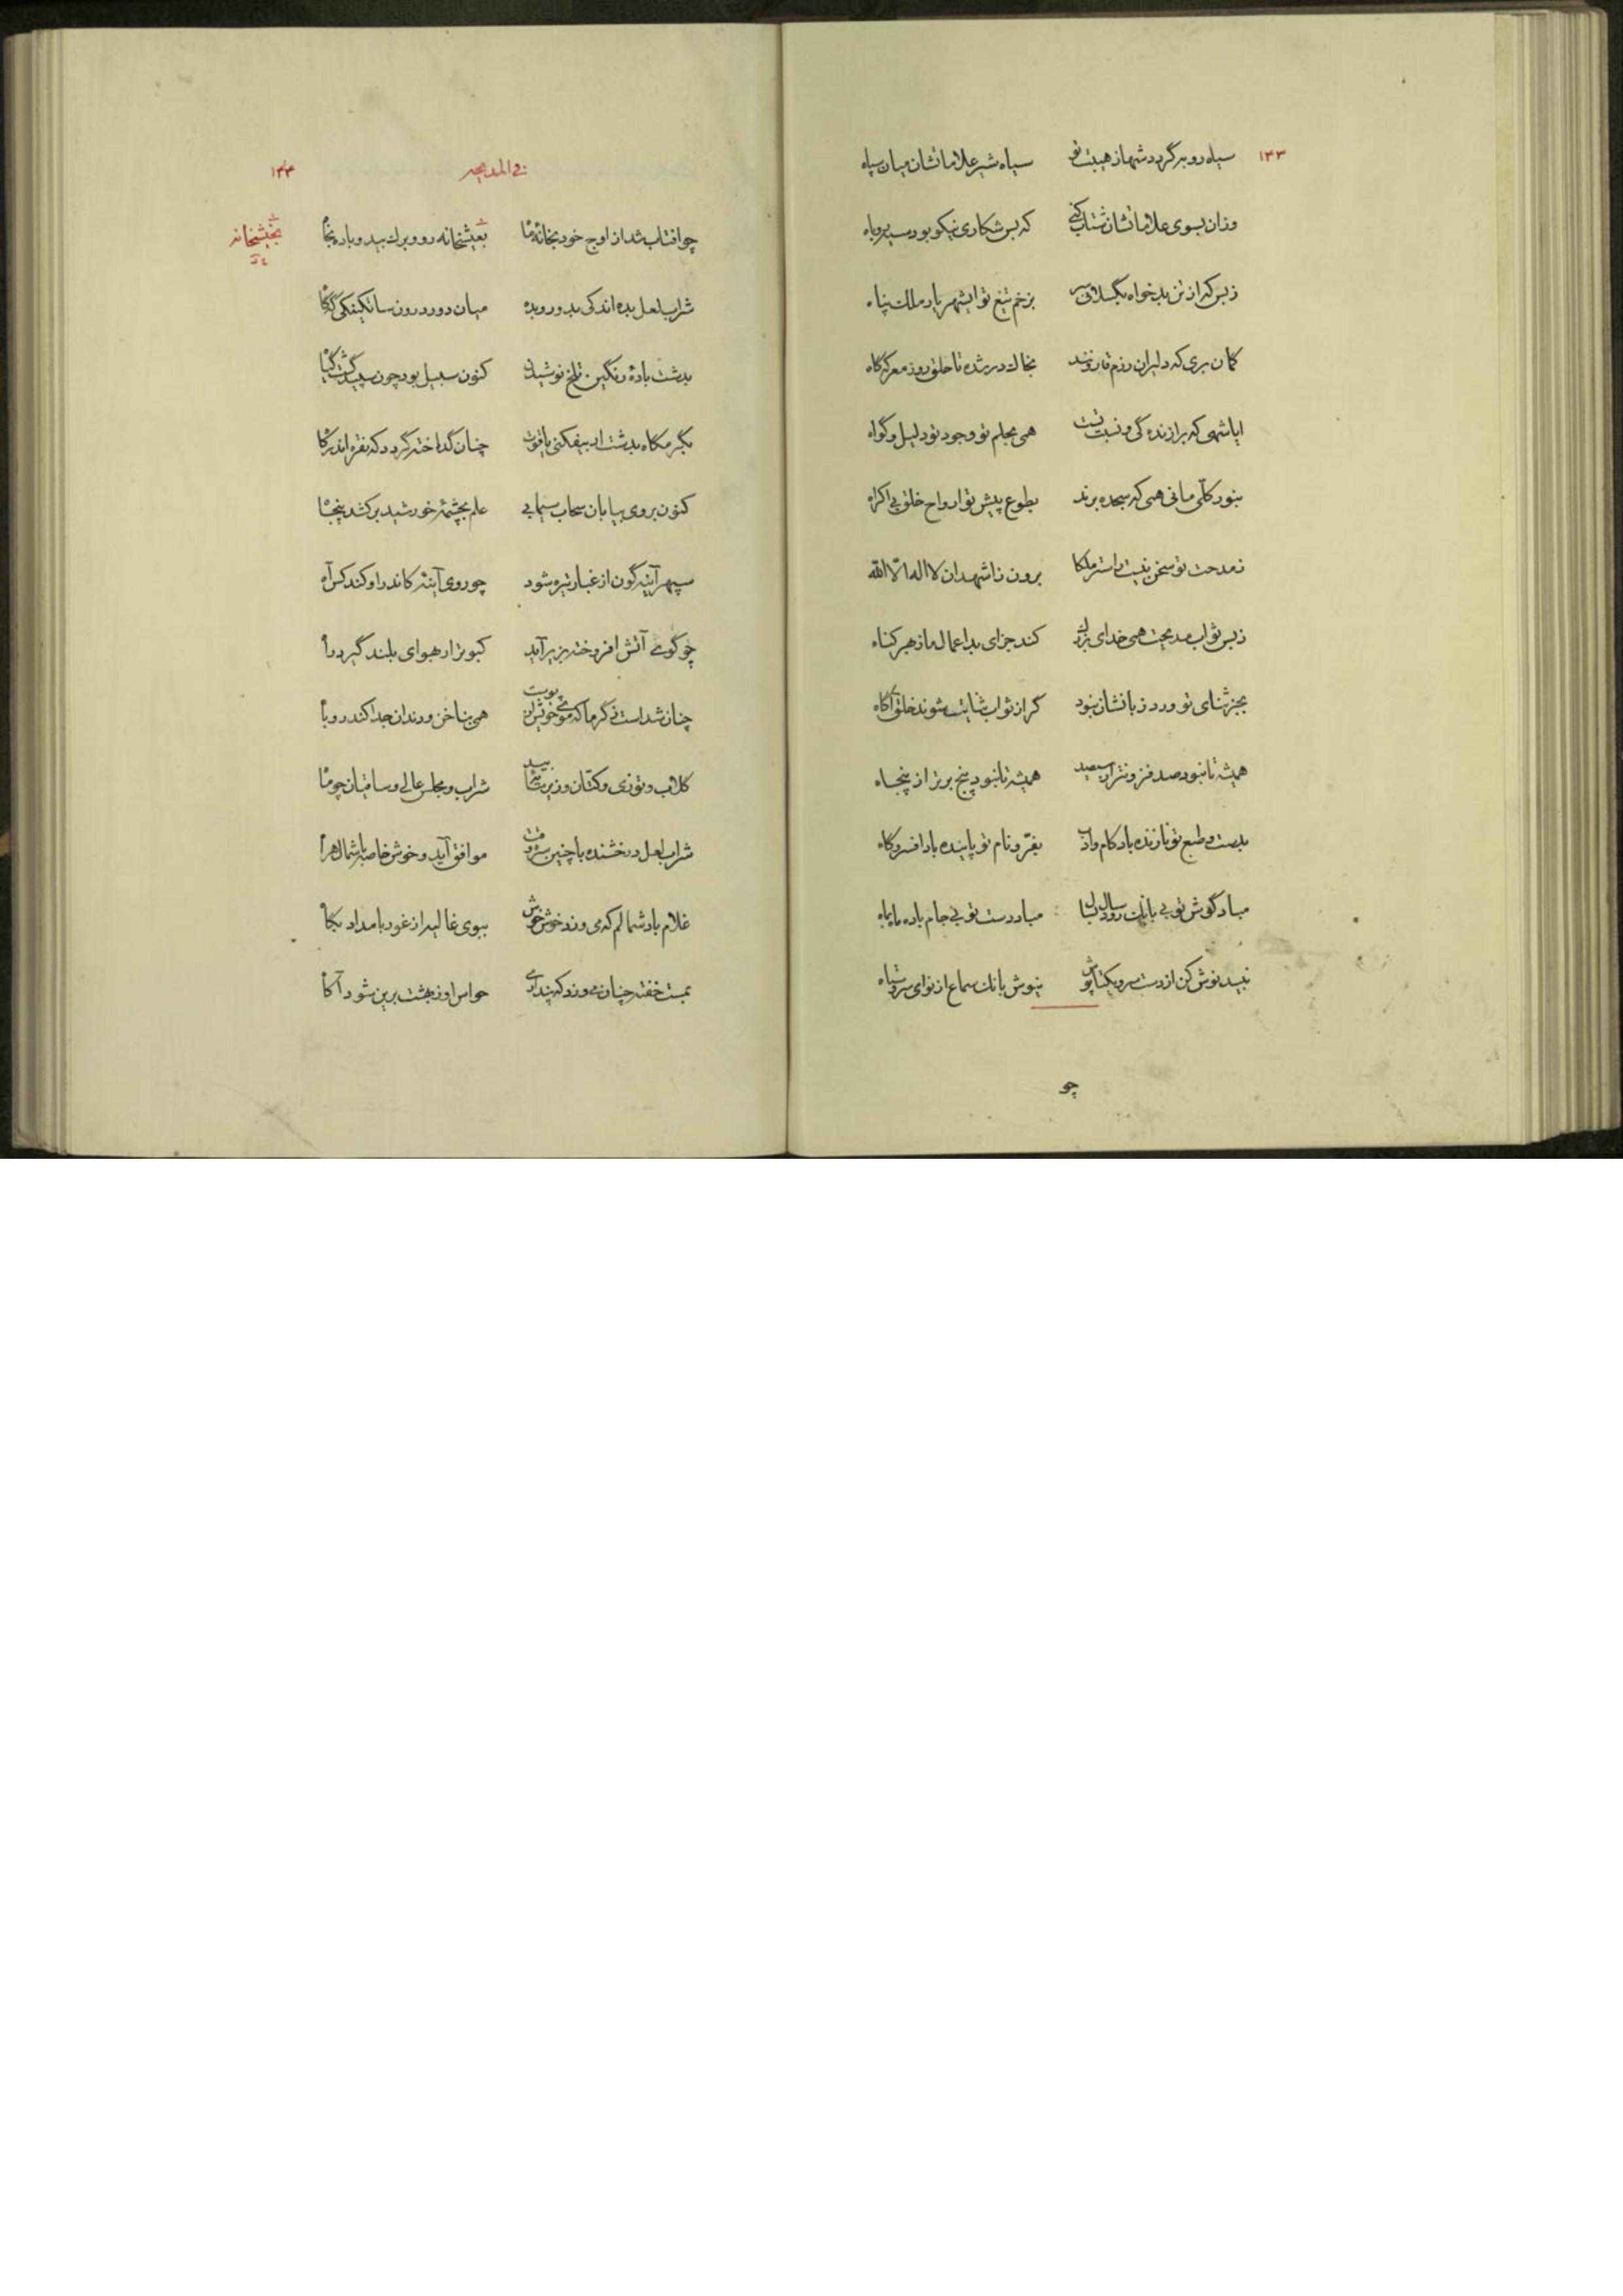 ۱۳۳
سیاه رو به گردد شها ز هیبت تو سپاه شیر علاماتشان میان سپاه
وزان بسوی علاماتشان شتاب کنی که بس شکاری نیکو بود سپر روباه
ز بس که از تن بدخواه بگسلانی سر بزخم تیغ تو ایشهریار ملک پناه
کمان بری که دلیران رزم قارونند بخاک در شده تا حلق روز معرکه گاه
ایا شهی که برازنده گی و نسبت تست همی بحلم تو وجود تو دلیل و گواه
بنور کلّی مانی همی که سجده برند بطوع پیش تو ارواح خلق بی اکراه
ز مدحت تو سخن نیست راستر ملکا برون ز اشهد ان لا اله الّا الله
ز بس ثواب مدیحت همی خدای بزرک کند جزای بد اعمال ما ز هر گناه
بجز ثنای تو ورد زبانشان نبود گر از ثواب ثنایت شوند خلق آگاه
همیشه تا نبود صد فزونتر از سیصد همیشه تا نبود پنج برتر از پنجاه
بدست و طبع تو نازنده باد کام و ادب بفرّ و نام تو پاینده باد افسر و گاه
مباد گوش تو بی بانک رود سال بسال مباد دست تو بی جام باده ماه بماه
نبید نوش کن از دست سرو یکتا پوش نیوش بانک سماع از نوای سرو ستاه
چو
فی المدیحه
۱۳۴
چو افتاب شد از اوج خود بخانهٔ ماه بخیشخانه رو و برک بید و باده بخواه
بخیشخانه
شراب لعل بده اندکی بدور و بده میان دور درون ساتکینکی گه گاه
بدشت بادهٔ رنگین تلخ نوشیدن کنون سبیل بود چون سپید گشت گیاه
بگرمگاه بدشت ار بیفکنی یاقوت چنان گداخته گردد که نقره اندر گاه
کنون بروی بیابان سحاب سیمابی علم بچشمهٔ خورشید برکشد پنجاه
سپهر آینه گون از غبار تیره شود چو روی آینهٔ کاندر او کند کس آه
چو گوی آتش افروخته بزیر آید کبوتر ار بهوای بلند گیرد راه
چنان شد است ز گرما که موی و پوست خویش همی بناخن و دندان جدا کند روباه
گلاب و توزی و کتّان و زیر سایهٔ بید شراب و مجلس عالی و ساقیان چو ماه
شراب لعل درخشنده با چنین سه رفت موافق آید و خوش خاصه با شمال هراه
غلام باد شمالم که می وزد خوش خوش ببوی غالیه از غور بامداد پگاه
بمست خفته چنان می وزد که پنداری حواس او ز بهشت برین شود آگاه